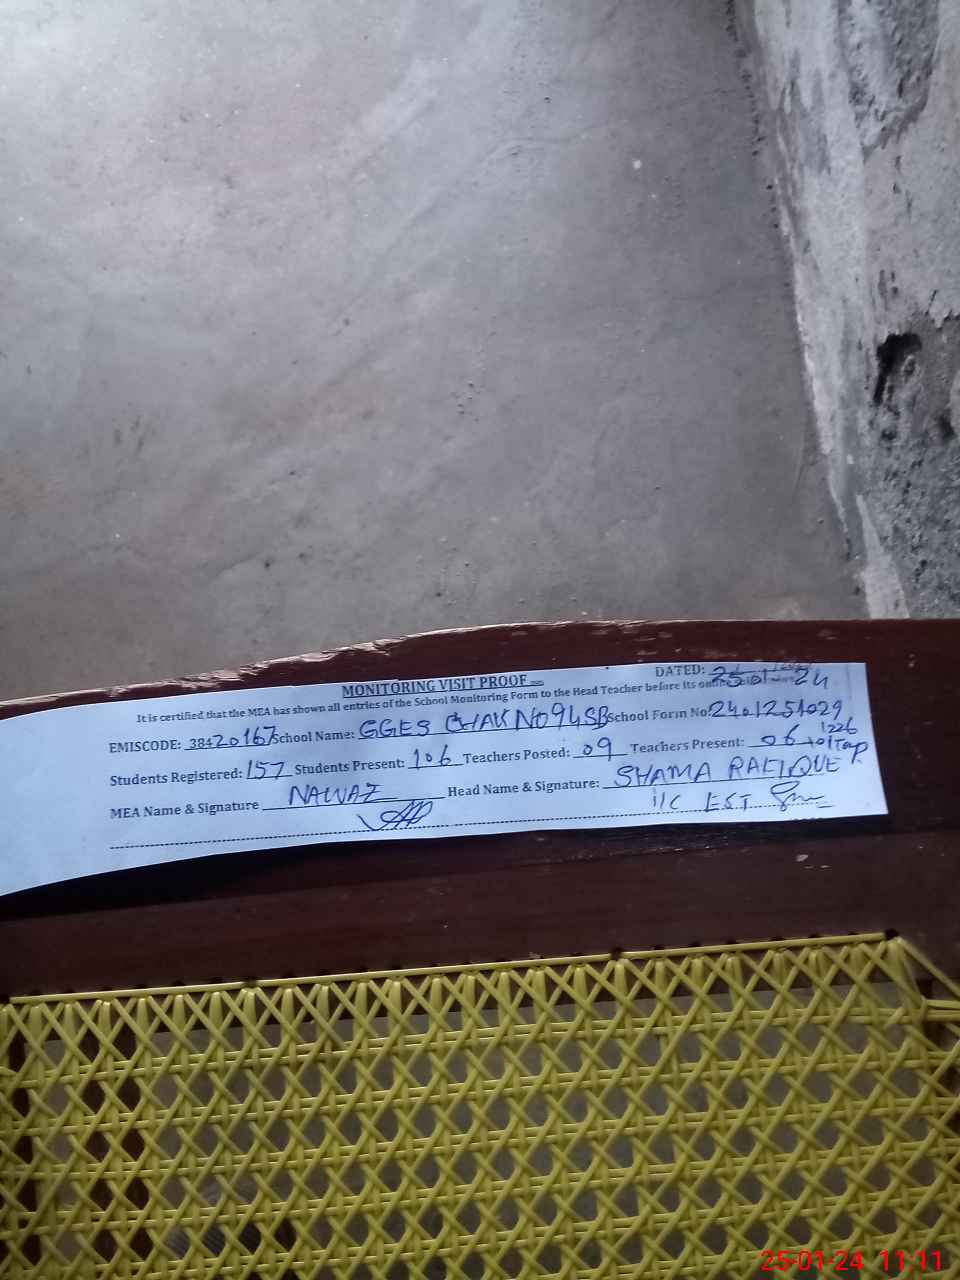 MONITORING VISIT PROOF
DATED: 25-01-24
It is certified that the MEA has shown all entries of the School Monitoring Form to the Head Teacher before its
EMISCODE: 38420167 School Name: GGES CHAK NO 94 SB School Form No: 2401251029
1226
Students Registered: 157 Students Present: 106 Teachers Posted: 09 Teachers Present: 06 +01
MEA Name & Signature NAWAZ Head Name & Signature: SHAMA RAFIQUE
I/C EST
25-01-24 11:11